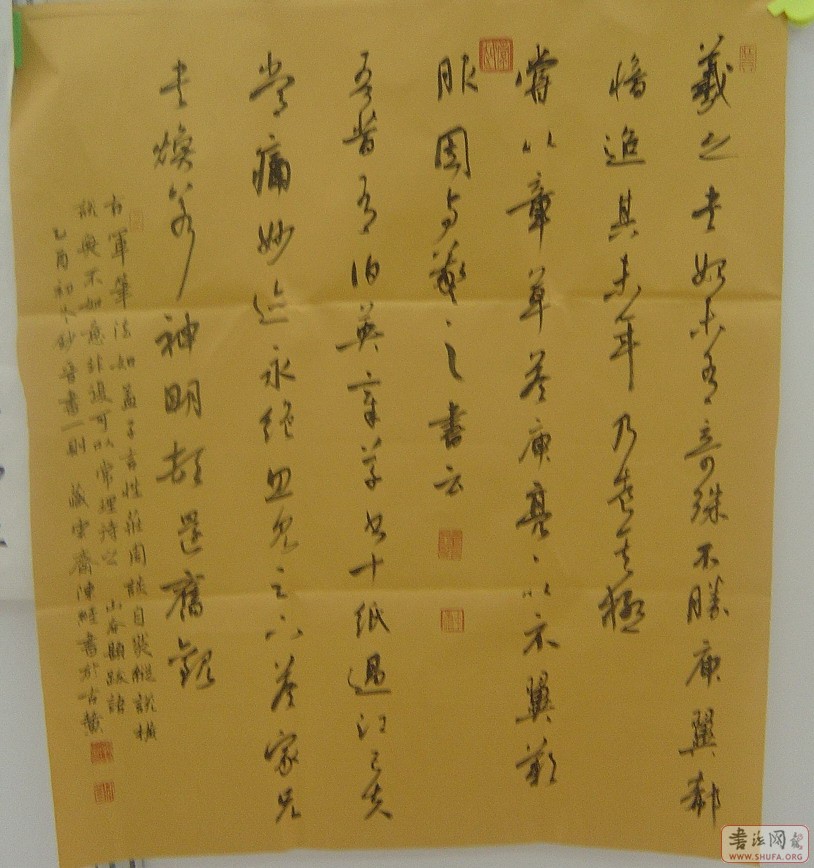 羲之書始未有奇殊不勝庾翼郗
愔迨其末年乃造其極
嘗以章草答庾亮亮以示翼歎
服因與羲之書云
吾昔有伯英章草十紙過江亡失
常痛妙迹永絕忽見足下答家兄
書煥若神明頓還舊觀
右軍筆法如孟子言性莊周談自然縱說橫
說無不如意非復可以常理待之 山谷題跋語
乙酉初冬鈔晉書一則 藏雲齋陳書於古
书法网
WWW.SHUFA.ORG